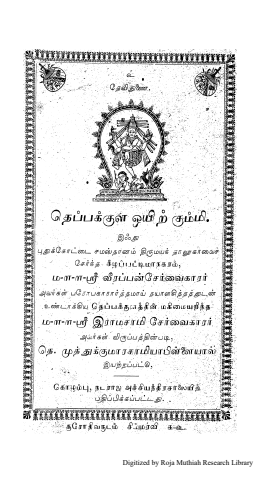 உ
தேவிதுணை.
தெப்பக்குள ஒயிற் கும்மி.
இஃது
புதுக்கோட்டை சமஸ்தானம் திருமயம் தாலூகாவைச்
சேர்ந்த கீழப்பட்டிமாநகரம்,
ம-ா-ா-ஸ்ரீ வீரப்பன்சேர்வைகாரர்
அவர்கள் பரோபகாரார்த்தமாய் தயாளசித்தத்துடன்
உண்டாக்கிய தெப்பக்குளத்தின் மகிமையறிந்த
ம-ா-ா-ஸ்ரீ இராமசாமி சேர்வைகாரர்
அவர்கள் விருப்பத்தின்படி,
தெ. முத்துக்குமாரசுாமியாபிள்ளையால்
இயற்றப்பட்டு,
கொழும்பு, நடராஜ அச்சியந்திரசாலையிற்
பதிப்பிக்கப்பட்டது.
குரோதிவருடம்
Digitized by Roja Muthiah Research Library